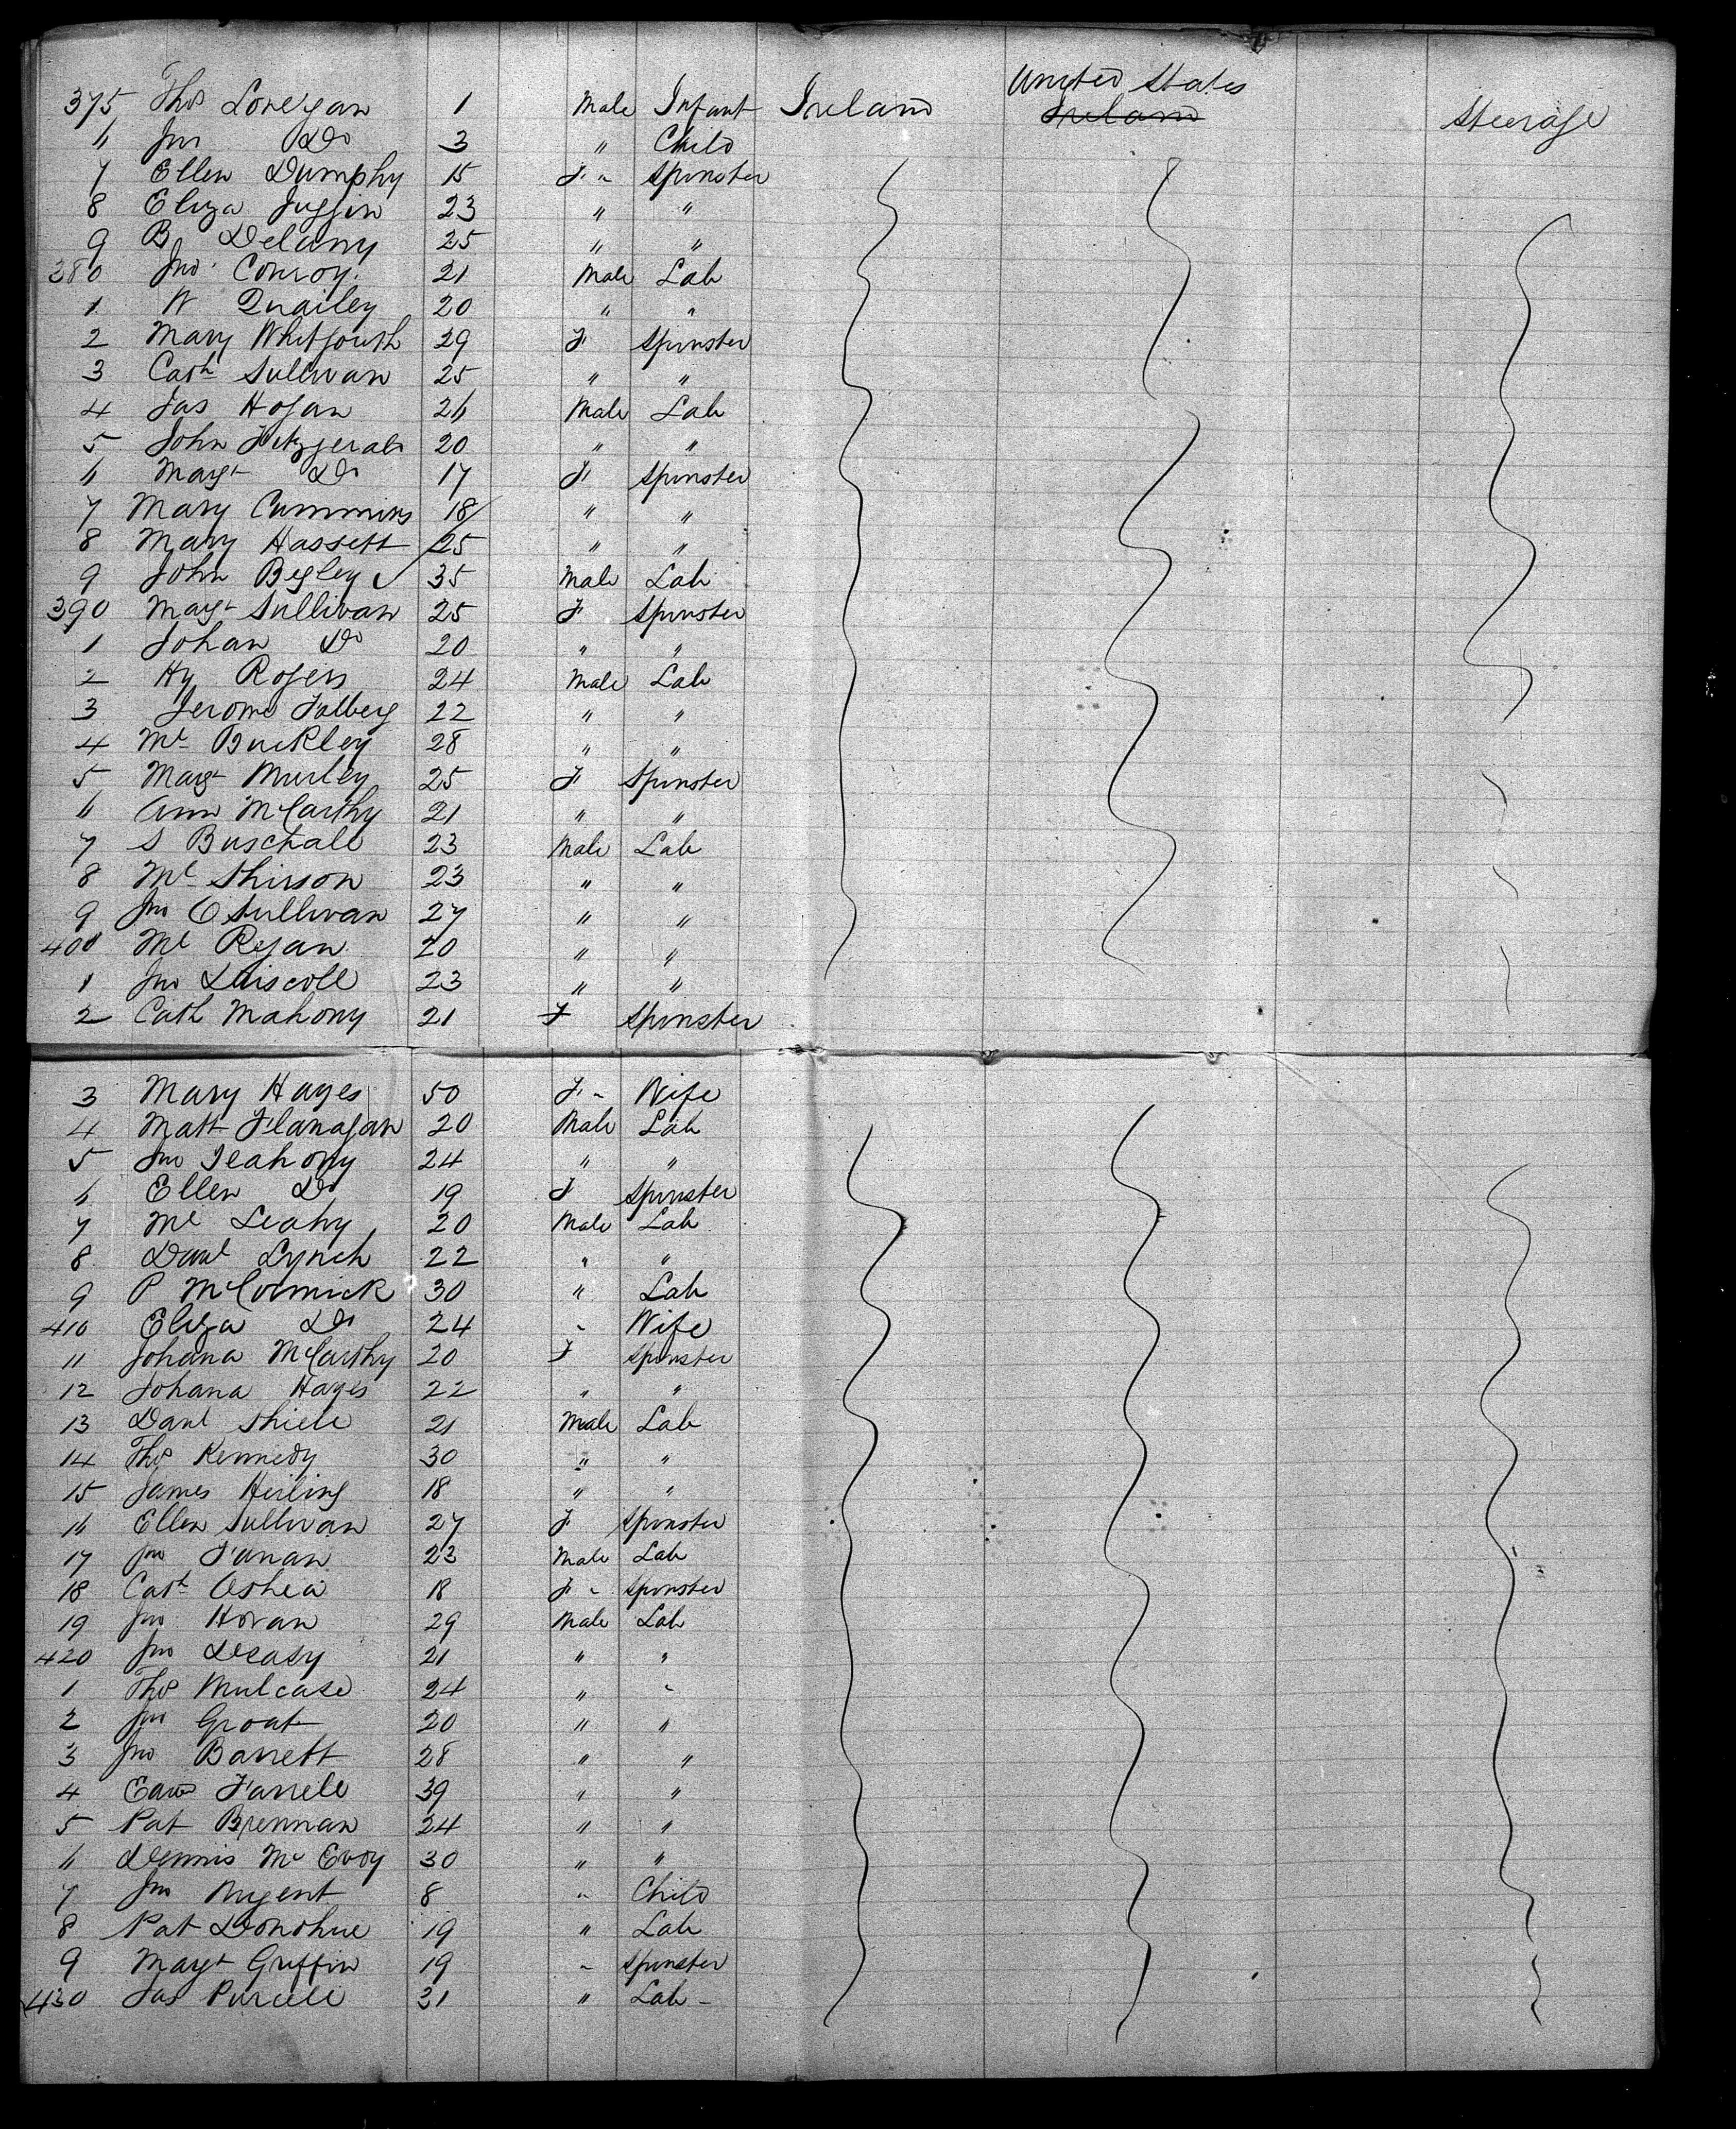 375 Thos Lonegan 1 Male Infant Ireland United States Ireland Steerage
6 Jno Do 3 " Child
7 Ellen Dumphy 15 F " Spinster
8 Eliza 23 " "
9 B Delany 25 " "
380 Jno Conroy 21 Male Lab
1 W Quailey 20 " "
2 Mary 29 F Spinster
3 Cath Sullivan 25 " "
4 Jas Hogan 26 Male Lab
5 John Fitzgerald 20 " "
6 Margt Do 17 F Spinster
7 Mary Cummins 18 " "
8 Mary Hassett 25 " "
9 John Begley 35 Male Lab
390 Margt Sullivan 25 F Spinster
1 Johan Do 20 " "
2 Hy Rogers 24 Male Lab
3 Jerome 22 " "
4 Ml Buckley 28 " "
5 Margt Murley 25 F Spinster
6 Ann McCarthy 21 " "
7 S Buschall 23 Male Lab
8 Ml 23 " "
9 Jno O Sullivan 27 " "
400 Ml Ryan 20 " "
1 Jno Driscoll 23 " "
2 Cath Mahony 21 F Spinster
3 Mary Hayes 50 F " Wife
4 Matt Flanagan 20 Male Lab
5 Jno 24 " "
6 Ellen Do 19 F Spinster
7 Ml Leahy 20 Male Lab
8 Danl Lynch 22 " "
9 P McCormick 30 " Lab
410 Eliza Do 24 " Wife
11 Johana McCarthy 20 F Spinster
12 Johana Hayes 22 " "
13 Danl Shiell 21 Male Lab
14 Thos Kennedy 30 " "
15 James 18 " "
16 Ellen Sullivan 27 F Spinster
17 Jno Fanan 23 Male Lab
18 Cath Oshea 18 F " Spinster
19 Jno Horan 29 Male Lab
420 Jno Deasy 21 " "
1 Thos Mulcase 24 " "
2 Jno Groat 20 " "
3 Jno Barrett 28 " "
4 Edwd Farrell 39 " "
5 Pat Brennan 24 " "
6 Dennis Mc Evoy 30 " "
7 Jno Nugent 8 " Child
8 Pat Donohue 19 " Lab
9 Margt Griffin 19 " Spinster
430 Jas Purcell 31 " Lab